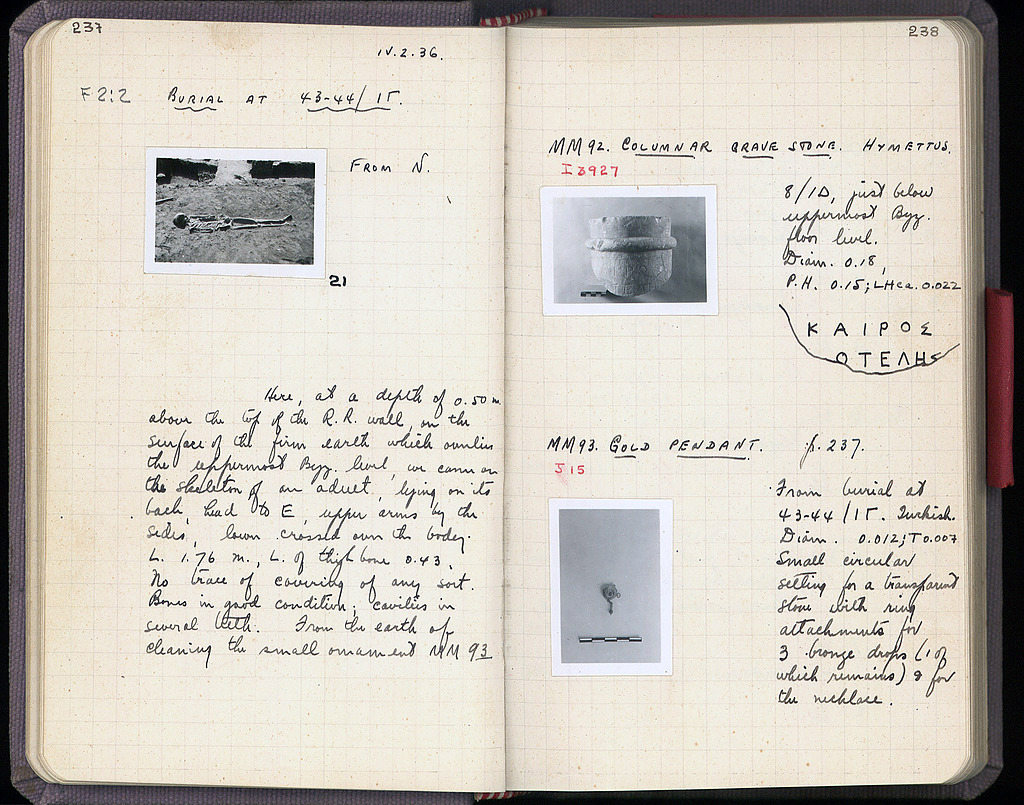 237
IV.2.36.
F 2:2 BURIAL AT 43-44/ΙΓ.
FROM N.
21
Here, at a depth of 0.50 m.
above the top of the R.R. wall, on the
surface of the firm earth which overlies
the uppermost Byz. level, we came on
the skeleton of an adult, lying on its
back, head to E, upper arms by the
sides, lower crossed over the body.
L. 1.76 m., L. of thigh bone 0.43.
No trace of covering of any sort.
Bones in good condition; cavities in
several teeth. From the earth of
cleaning the small ornament MM 93
238
MM92. COLUMNAR GRAVE STONE. HYMETTUS.
I 3927
8/ΙΔ, just below
uppermost Byz.
floor level.
Diam. 0.18,
P.H. 0.15; LH ca. 0.022
ΚΑΙΡΟΣ
ΟΤΕΛΗΣ
MM93. GOLD PENDANT. p. 237.
J 15
From burial at
43-44/ΙΓ. Turkish.
Diam. 0.012; T 0.007
Small circular
setting for a transparent
stone with ring
attachments for
3 bronze drops (1 of
which remains) & for
the necklace.